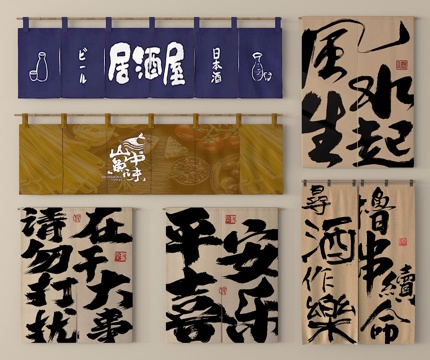 ビール
居酒屋
日本酒
风生
水起
在干大事
请勿打扰
平安
喜乐
撸串續命
尋酒作樂